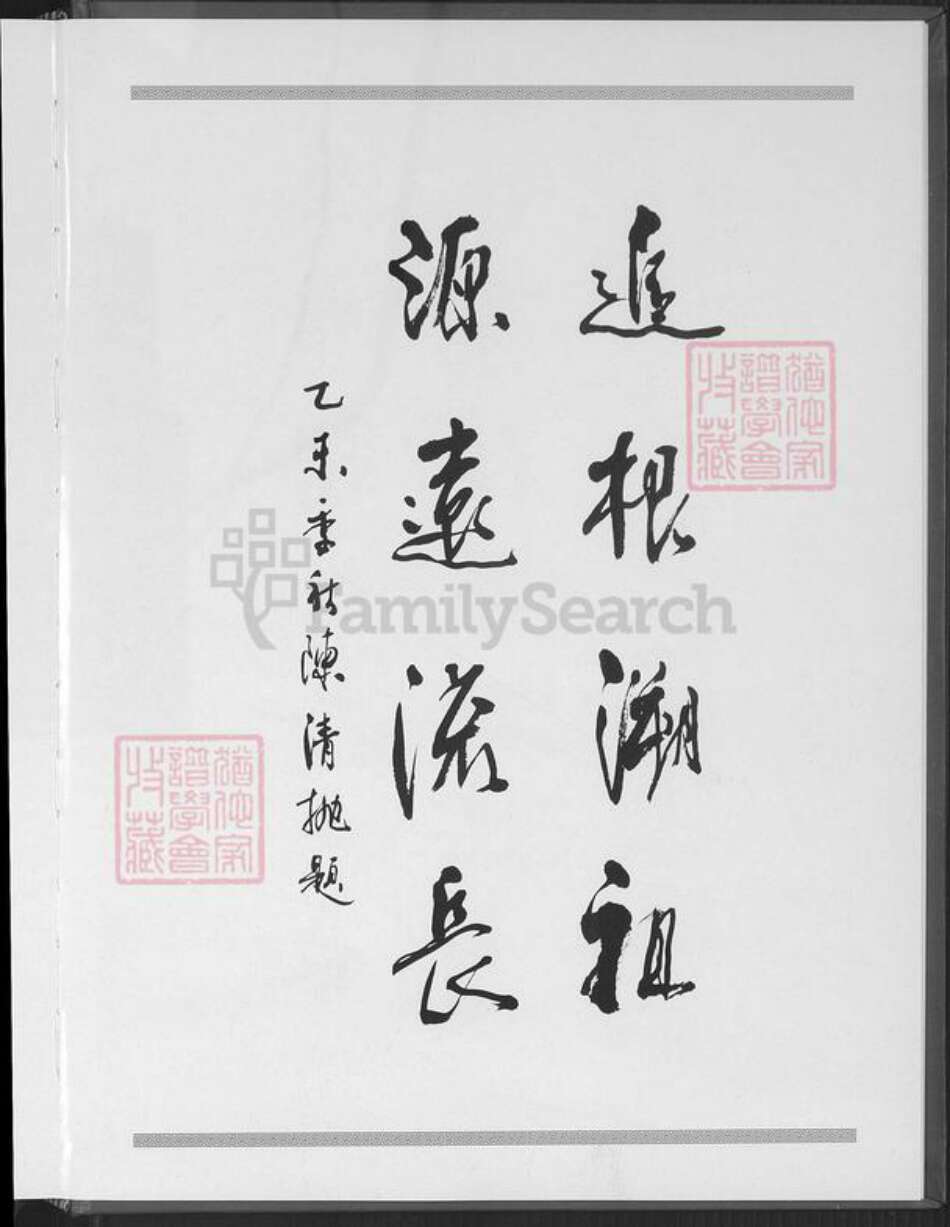 追根溯祖
源遠流長
乙未季秋陳清拋題
猶他家
譜學會
收藏
猶他家
譜學會
收藏
FamilySearch